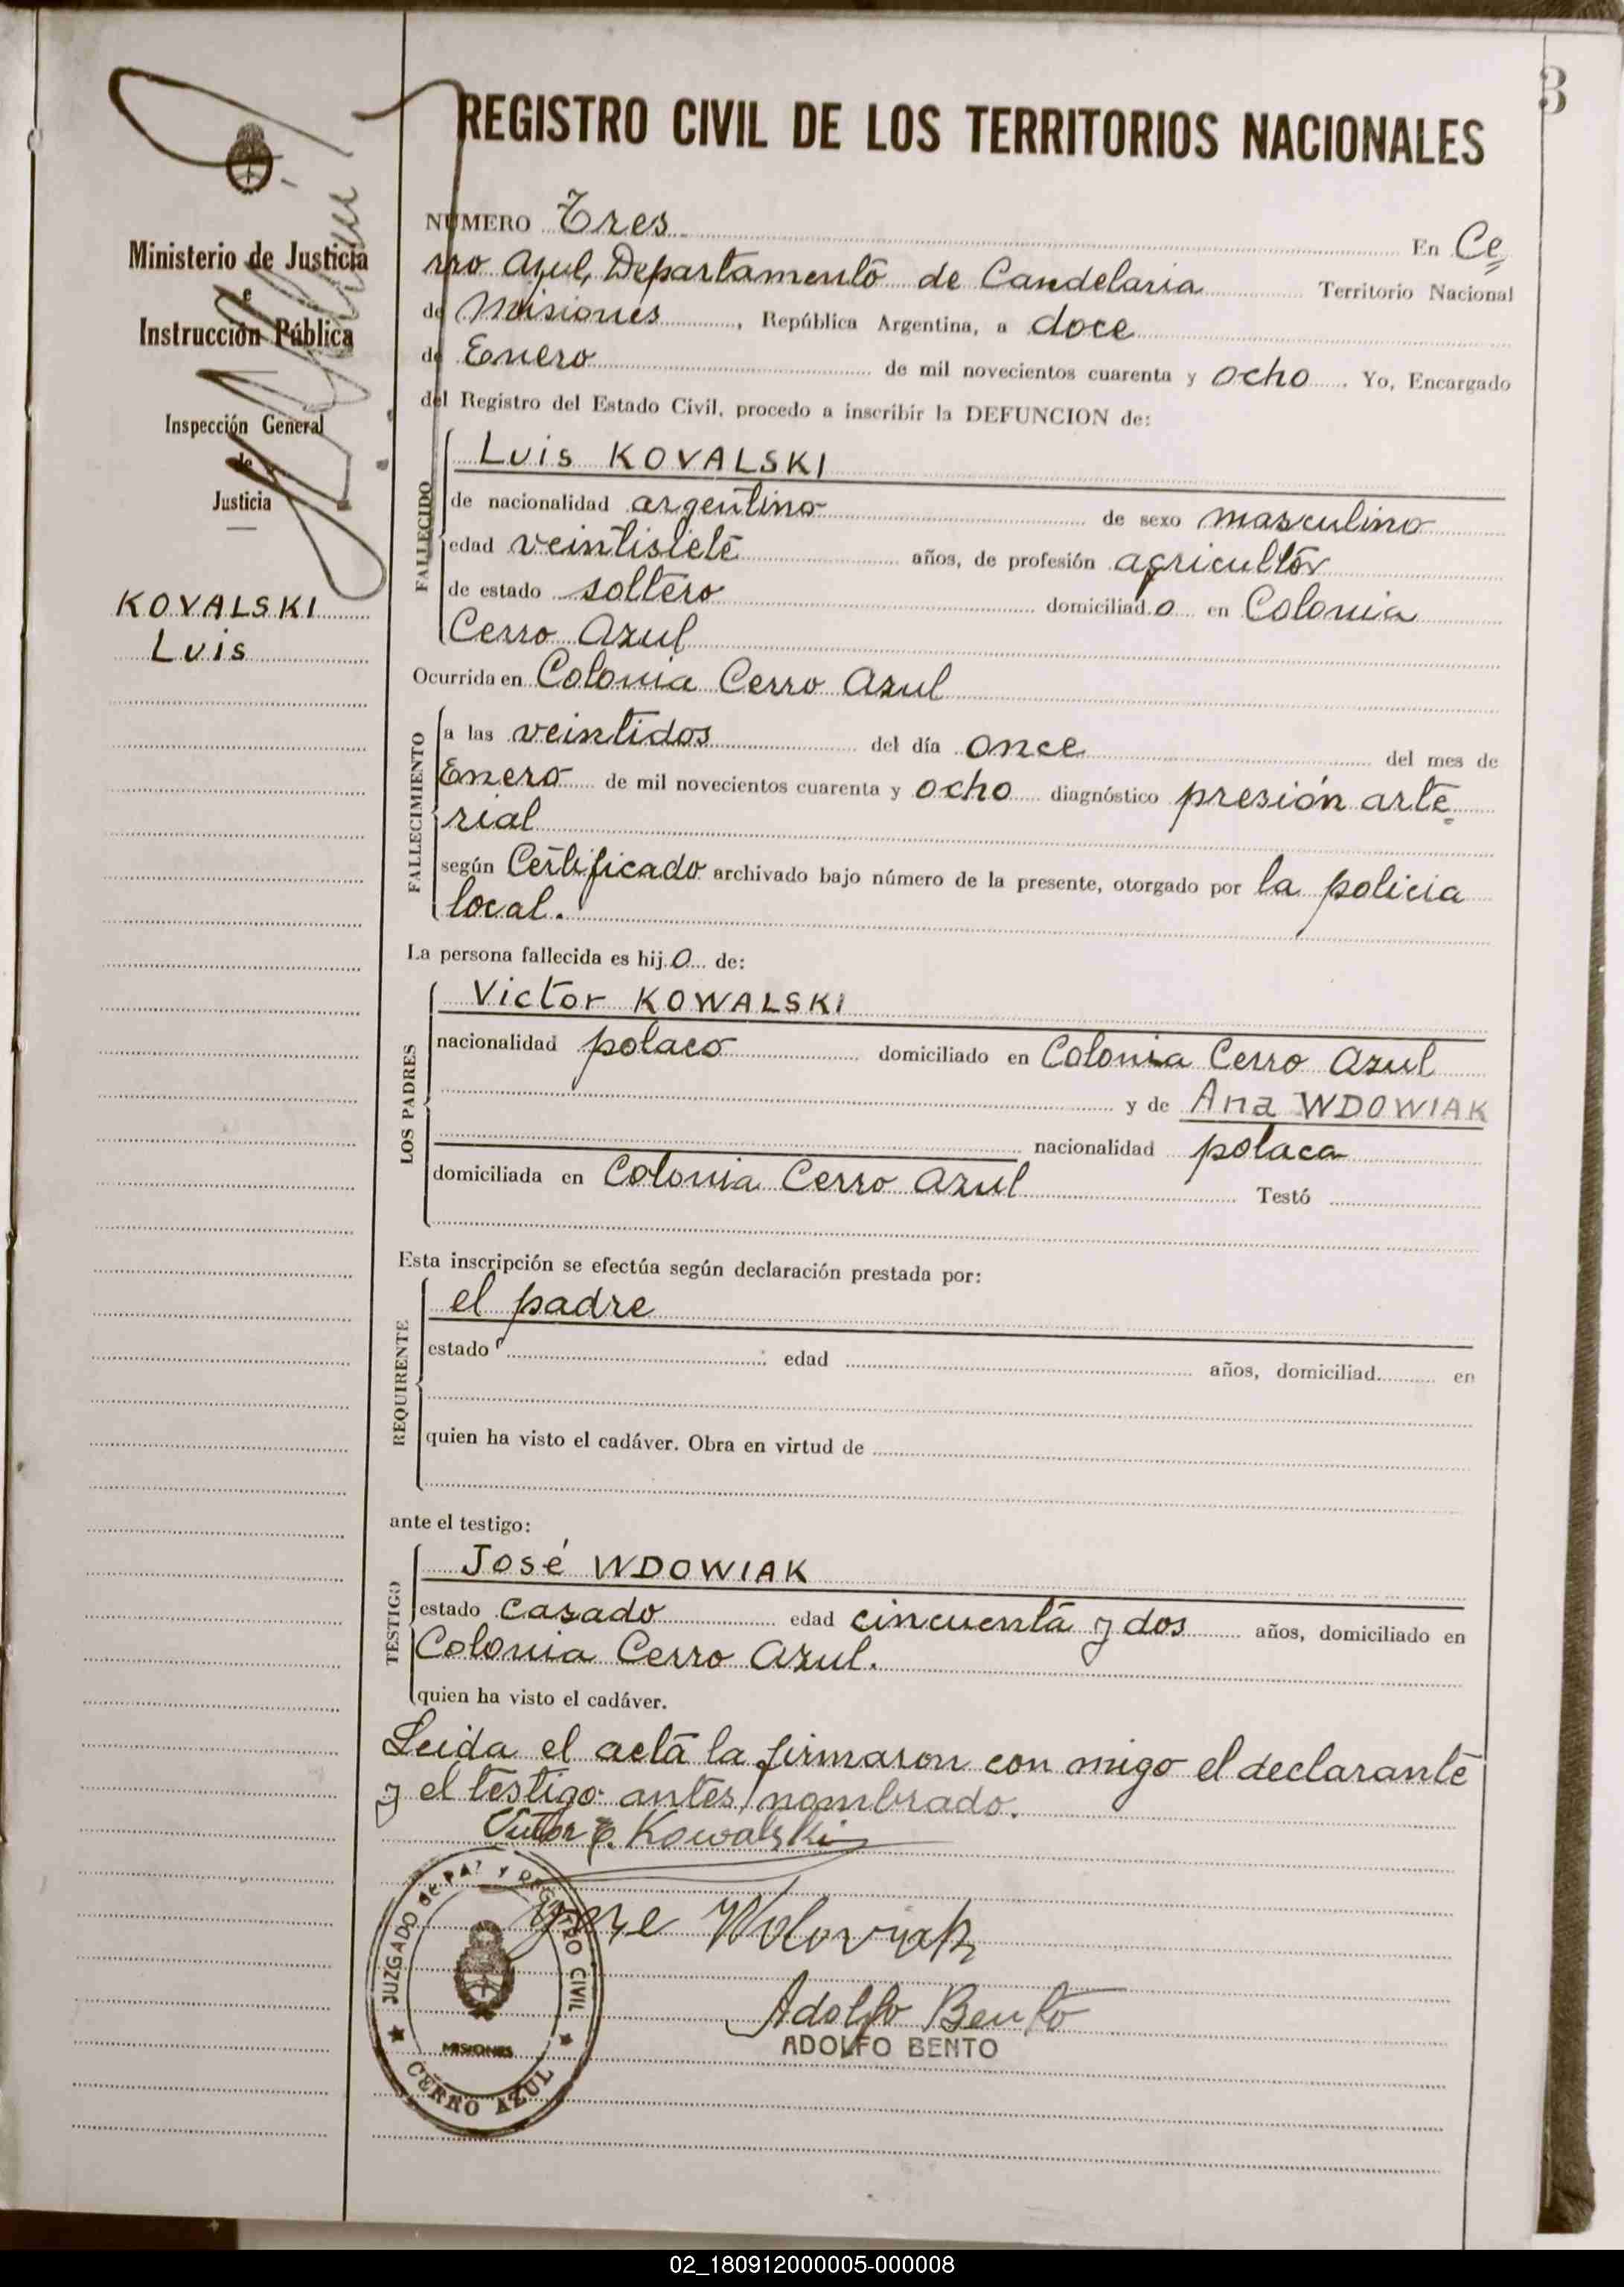 3
REGISTRO CIVIL DE LOS TERRITORIOS NACIONALES
Ministerio de Justicia
e
Instrucción Pública
Inspección General
de
Justicia
KOVALSKI
Luis
NÚMERO Tres En Ce=
rro Azul, Departamento de Candelaria Territorio Nacional
de Misiones, República Argentina, a doce
de Enero de mil novecientos cuarenta y ocho. Yo, Encargado
del Registro del Estado Civil, procedo a inscribir la DEFUNCION de:
FALLECIDO
Luis KOVALSKI
de nacionalidad argentino de sexo masculino
edad veintisiete años, de profesión agricultor
de estado soltero domiciliado en Colonia
Cerro Azul
Ocurrida en Colonia Cerro Azul
FALLECIMIENTO
a las veintidos del día once del mes de
Enero de mil novecientos cuarenta y ocho diagnóstico presión arte=
rial
según Certificado archivado bajo número de la presente, otorgado por la policia
local.
La persona fallecida es hijo de:
LOS PADRES
Victor KOWALSKI
nacionalidad polaco domiciliado en Colonia Cerro Azul
y de Ana WDOWIAK
nacionalidad polaca
domiciliada en Colonia Cerro Azul Testó
Esta inscripción se efectúa según declaración prestada por:
REQUIRENTE
el padre
estado edad años, domiciliad en
quien ha visto el cadáver. Obra en virtud de
ante el testigo:
TESTIGO
José WDOWIAK
estado casado edad cincuenta y dos años, domiciliado en
Colonia Cerro Azul.
quien ha visto el cadáver.
Leida el acta la firmaron con migo el declarante
y el testigo antes nombrado.
Kowalski
JUZGADO de PAZ Y REGISTRO CIVIL
MISIONES
CERRO AZUL
Adolfo Bento
ADOLFO BENTO
02_180912000005-000008